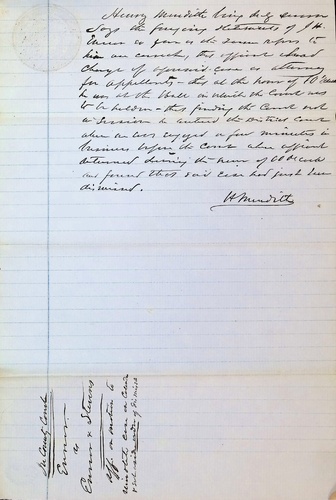 Henry Meredith being duly sworn
Says the foregoing statements of J H.
as far as the same refers to
him are correct, this affiant had
charge of said case as attorney
for appellants - that at the hour of 10 o'clock
he was at the Hall in which the Court was
to be holden - that finding the Court not
in Session he entered the District Court
when he was engaged a few minutes in
business before the Court when affiant
returned during the hour of 10 o'clock
and found that said case had just been
dismissed.
H Meredith
In County Court
vs
& Stevens
affs on motion to
reinstate case on Calendar
& set aside order of Dismissal